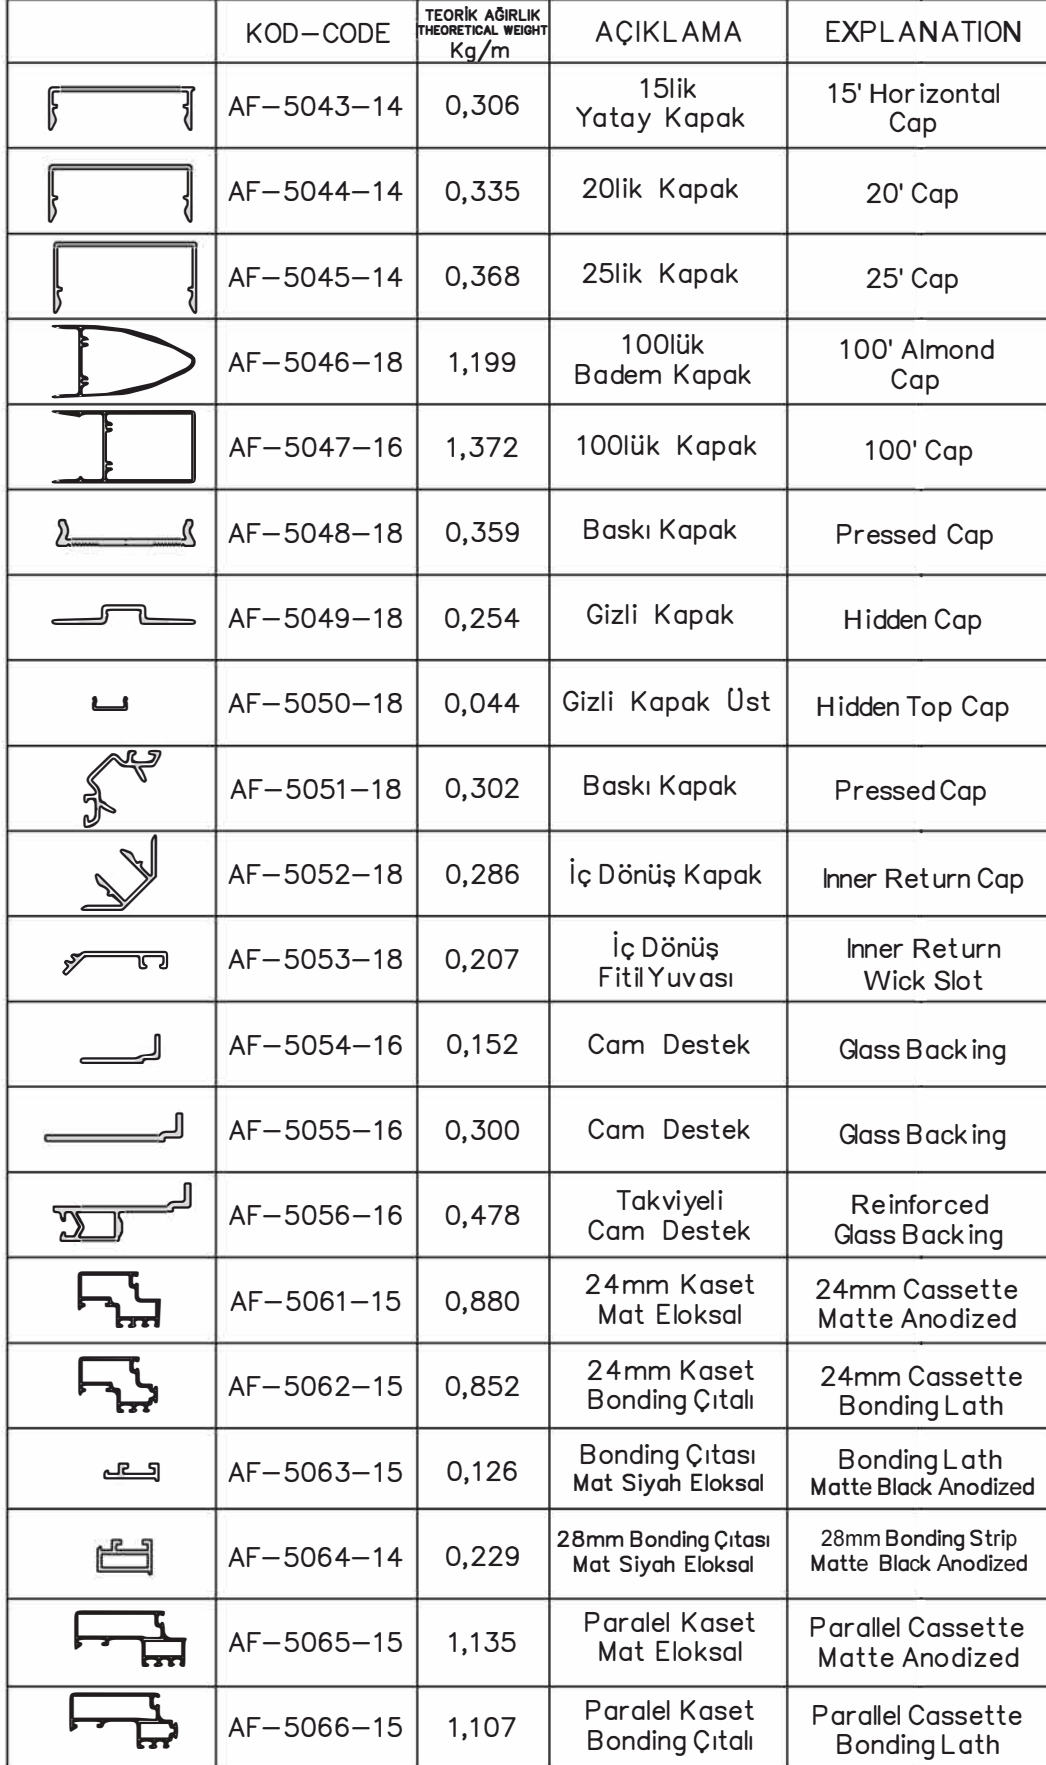 KOD-CODE
TEORİK AĞIRLIK
THEORETICAL WEIGHT
Kg/m
AÇIKLAMA
EXPLANATION
AF-5043-14
0,306
15lik
Yatay Kapak
15' Horizontal
Cap
AF-5044-14
0,335
20lik Kapak
20' Cap
AF-5045-14
0,368
25lik Kapak
25' Cap
AF-5046-18
1,199
100lük
Badem Kapak
100' Almond
Cap
AF-5047-16
1,372
100lük Kapak
100' Cap
AF-5048-18
0,359
Baskı Kapak
Pressed Cap
AF-5049-18
0,254
Gizli Kapak
Hidden Cap
AF-5050-18
0,044
Gizli Kapak Üst
Hidden Top Cap
AF-5051-18
0,302
Baskı Kapak
Pressed Cap
AF-5052-18
0,286
İç Dönüş Kapak
Inner Return Cap
AF-5053-18
0,207
İç Dönüş
Fitil Yuvası
Inner Return
Wick Slot
AF-5054-16
0,152
Cam Destek
Glass Backing
AF-5055-16
0,300
Cam Destek
Glass Backing
AF-5056-16
0,478
Takviyeli
Cam Destek
Reinforced
Glass Backing
AF-5061-15
0,880
24mm Kaset
Mat Eloksal
24mm Cassette
Matte Anodized
AF-5062-15
0,852
24mm Kaset
Bonding Çıtalı
24mm Cassette
Bonding Lath
AF-5063-15
0,126
Bonding Çıtası
Mat Siyah Eloksal
Bonding Lath
Matte Black Anodized
AF-5064-14
0,229
28mm Bonding Çıtası
Mat Siyah Eloksal
28mm Bonding Strip
Matte Black Anodized
AF-5065-15
1,135
Paralel Kaset
Mat Eloksal
Parallel Cassette
Matte Anodized
AF-5066-15
1,107
Paralel Kaset
Bonding Çıtalı
Parallel Cassette
Bonding Lath